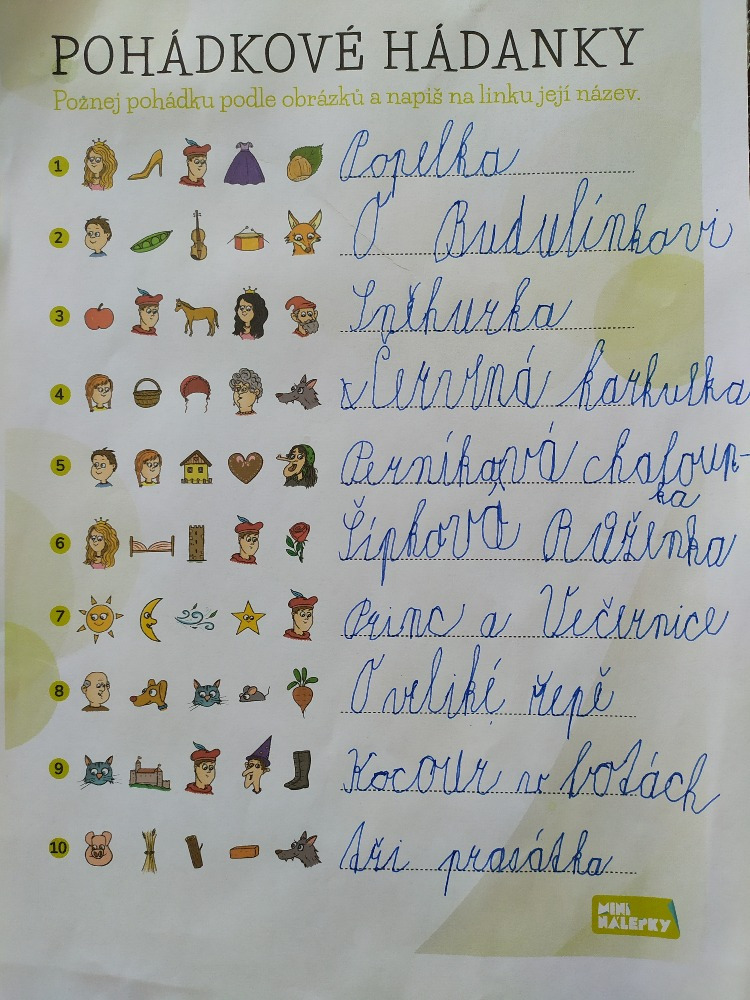 POHÁDKOVÉ HÁDANKY
Poznej pohádku podle obrázků a napiš na linku její název.
1 Popelka
2 O Budulínkovi
3 Sněhurka
4 Červená karkulka
5 Perníková chaloup-
ka
6 Šípková Růženka
7 Princ a Večernice
8 O veliké řepě
9 Kocour v botách
10 tři prasátka
MINI
NÁLEPKY